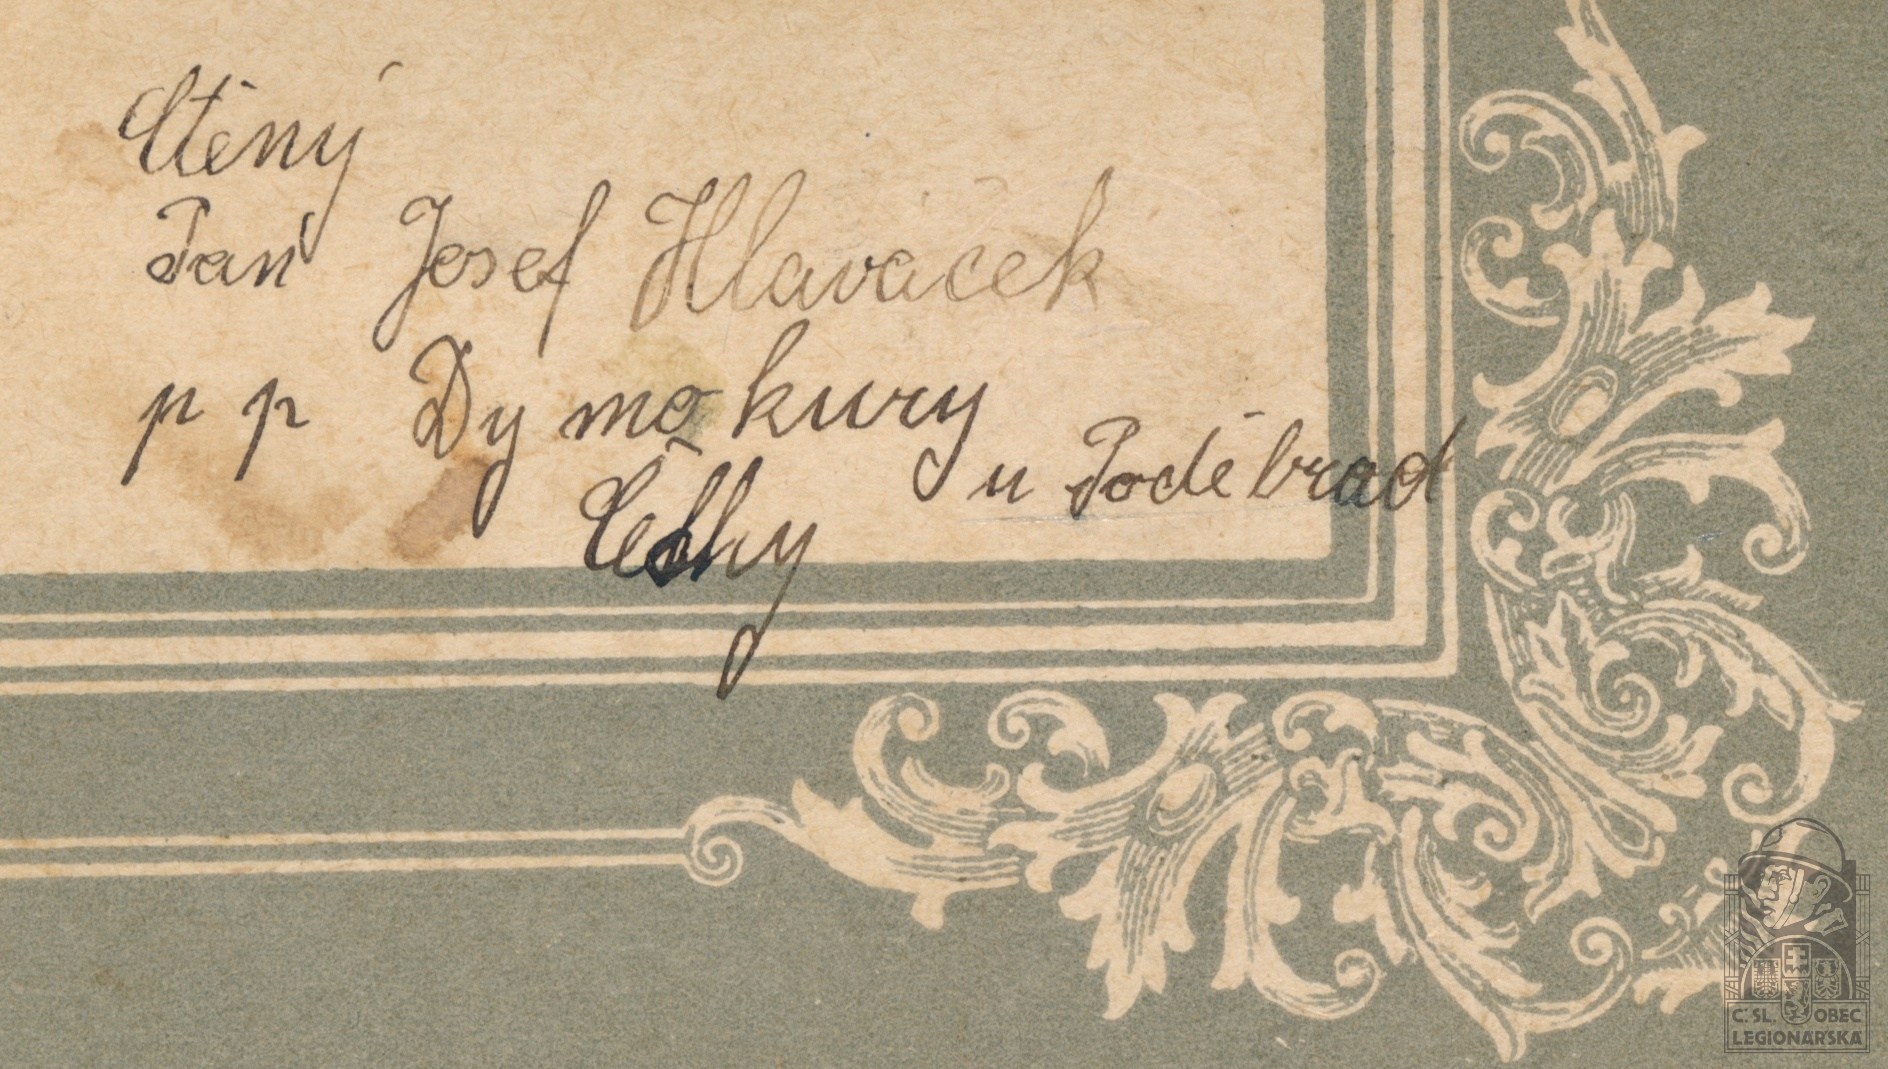 Ctěný
Pan Josef Hlaváček
p p Dymokury
u Poděbrad
Čechy
Č. SL. OBEC
LEGIONÁŘSKÁ